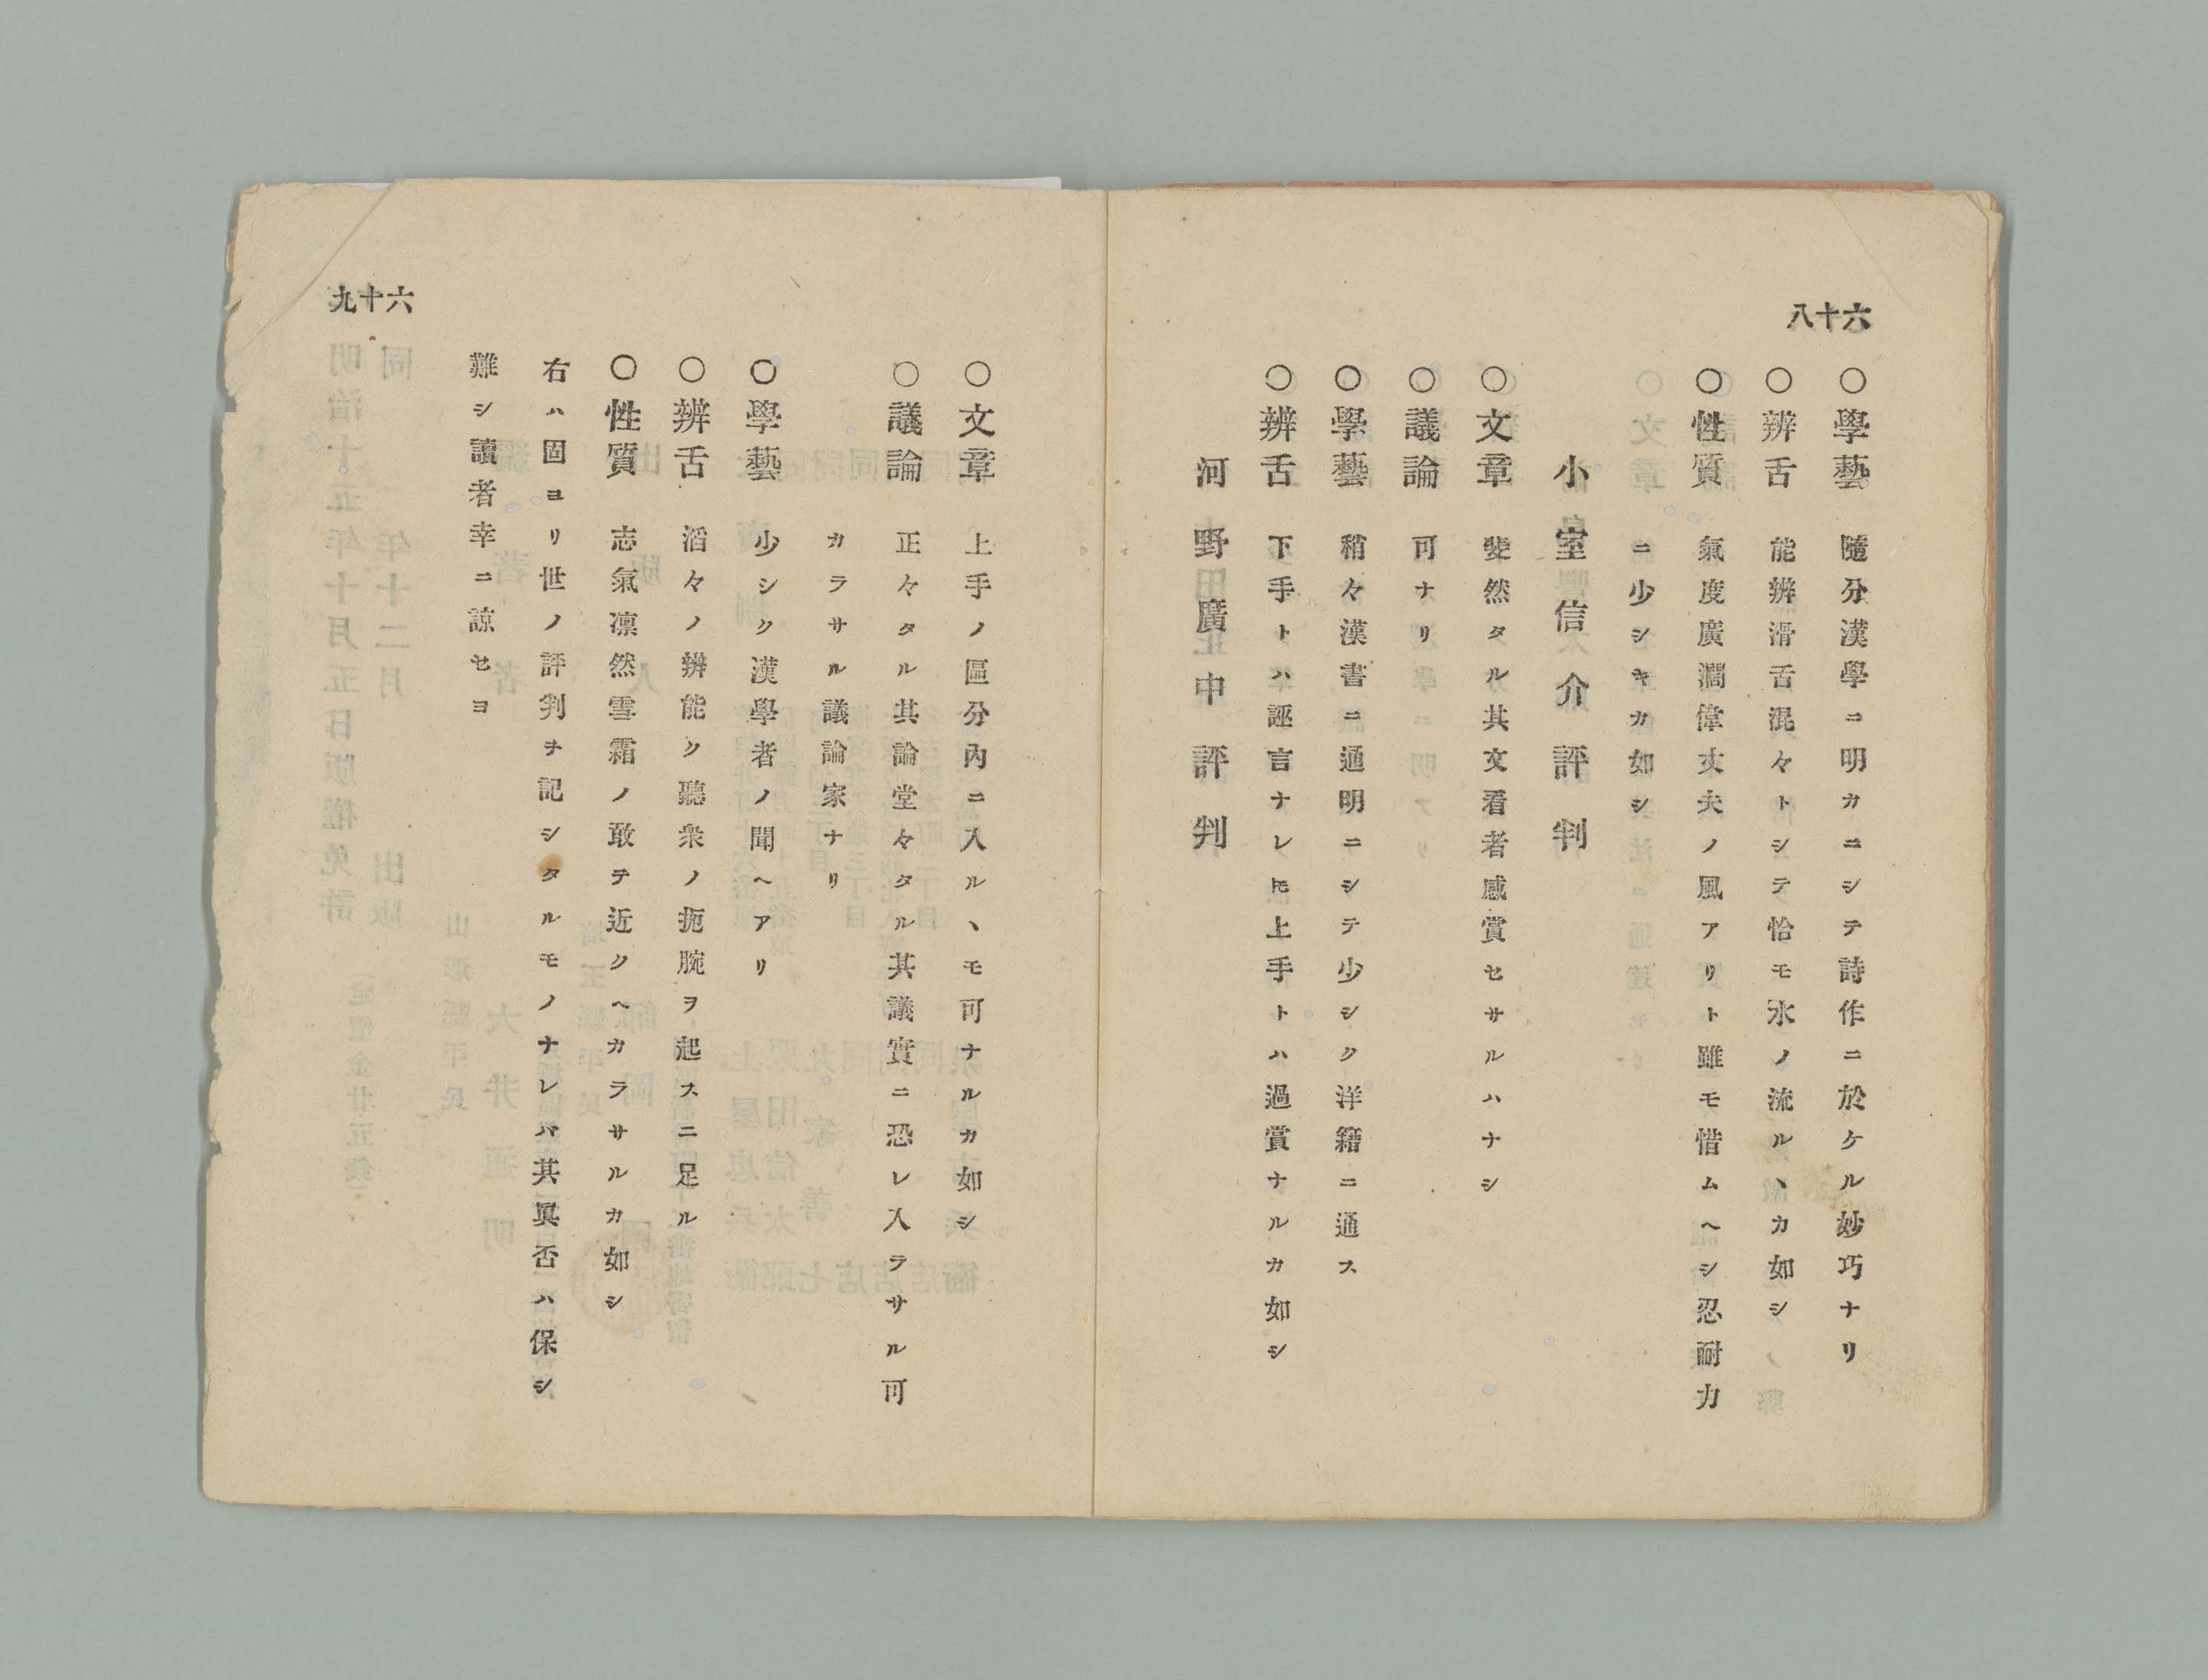 六十八
○學藝　隨分漢學ニ明カニシテ詩作ニ於ケル妙巧ナリ
○辨舌　能辨滑舌混々トシテ恰モ水ノ流ルヽカ如シ
○性質　氣度廣濶偉丈夫ノ風アリト雖モ惜ムヘシ忍耐力
ニ少シキカ如シ
小室信介評判
○文章　斐然タル其文看者感賞セサルハナシ
○議論　可ナリ
○學藝　稍々漢書ニ通明ニシテ少シク洋籍ニ通ス
○辨舌　下手トハ誣言ナレ𪜈上手トハ過賞ナルカ如シ
河野廣中評判
六十九
○文章　上手ノ區分內ニ入ルヽモ可ナルカ如シ
○議論　正々タル其論堂々タル其議實ニ恐レ入ラサル可
カラサル議論家ナリ
○學藝　少シク漢學者ノ聞ヘアリ
○辨舌　滔々ノ辨能ク聽衆ノ扼腕ヲ起スニ足ル
○性質　志氣凛然雪霜ノ敢テ近クヘカラサルカ如シ
右ハ固ヨリ世ノ評判ヲ記シタルモノナレハ其眞否ハ保シ
難シ讀者幸ニ諒セヨ